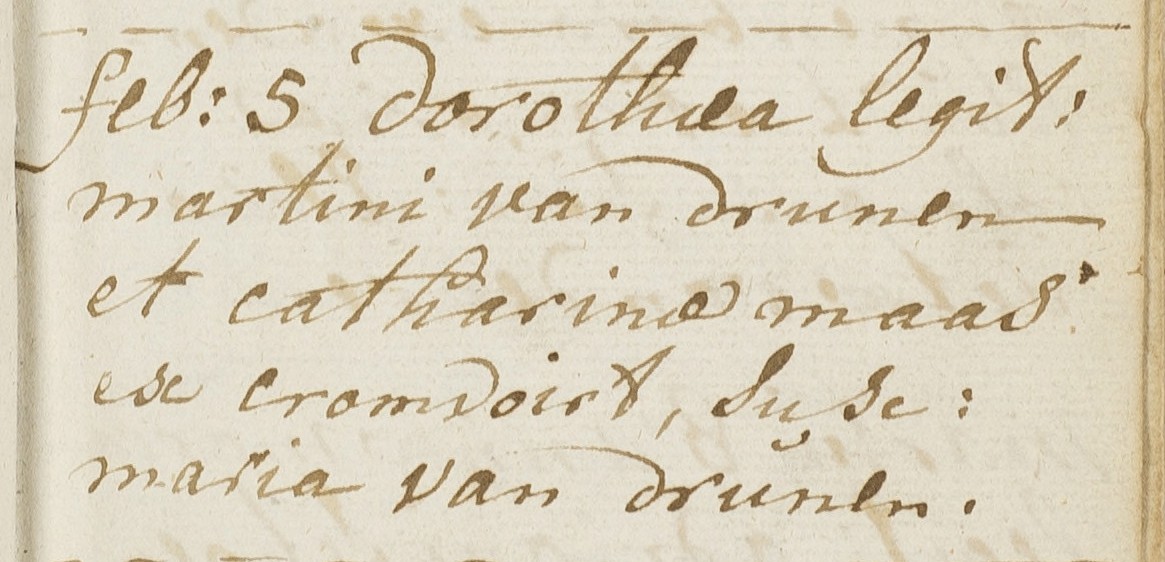 feb: 5 dorothea legit:
martini van drunen
et catharinæ maas
ex cromvoirt, Susc:
maria van drunen.